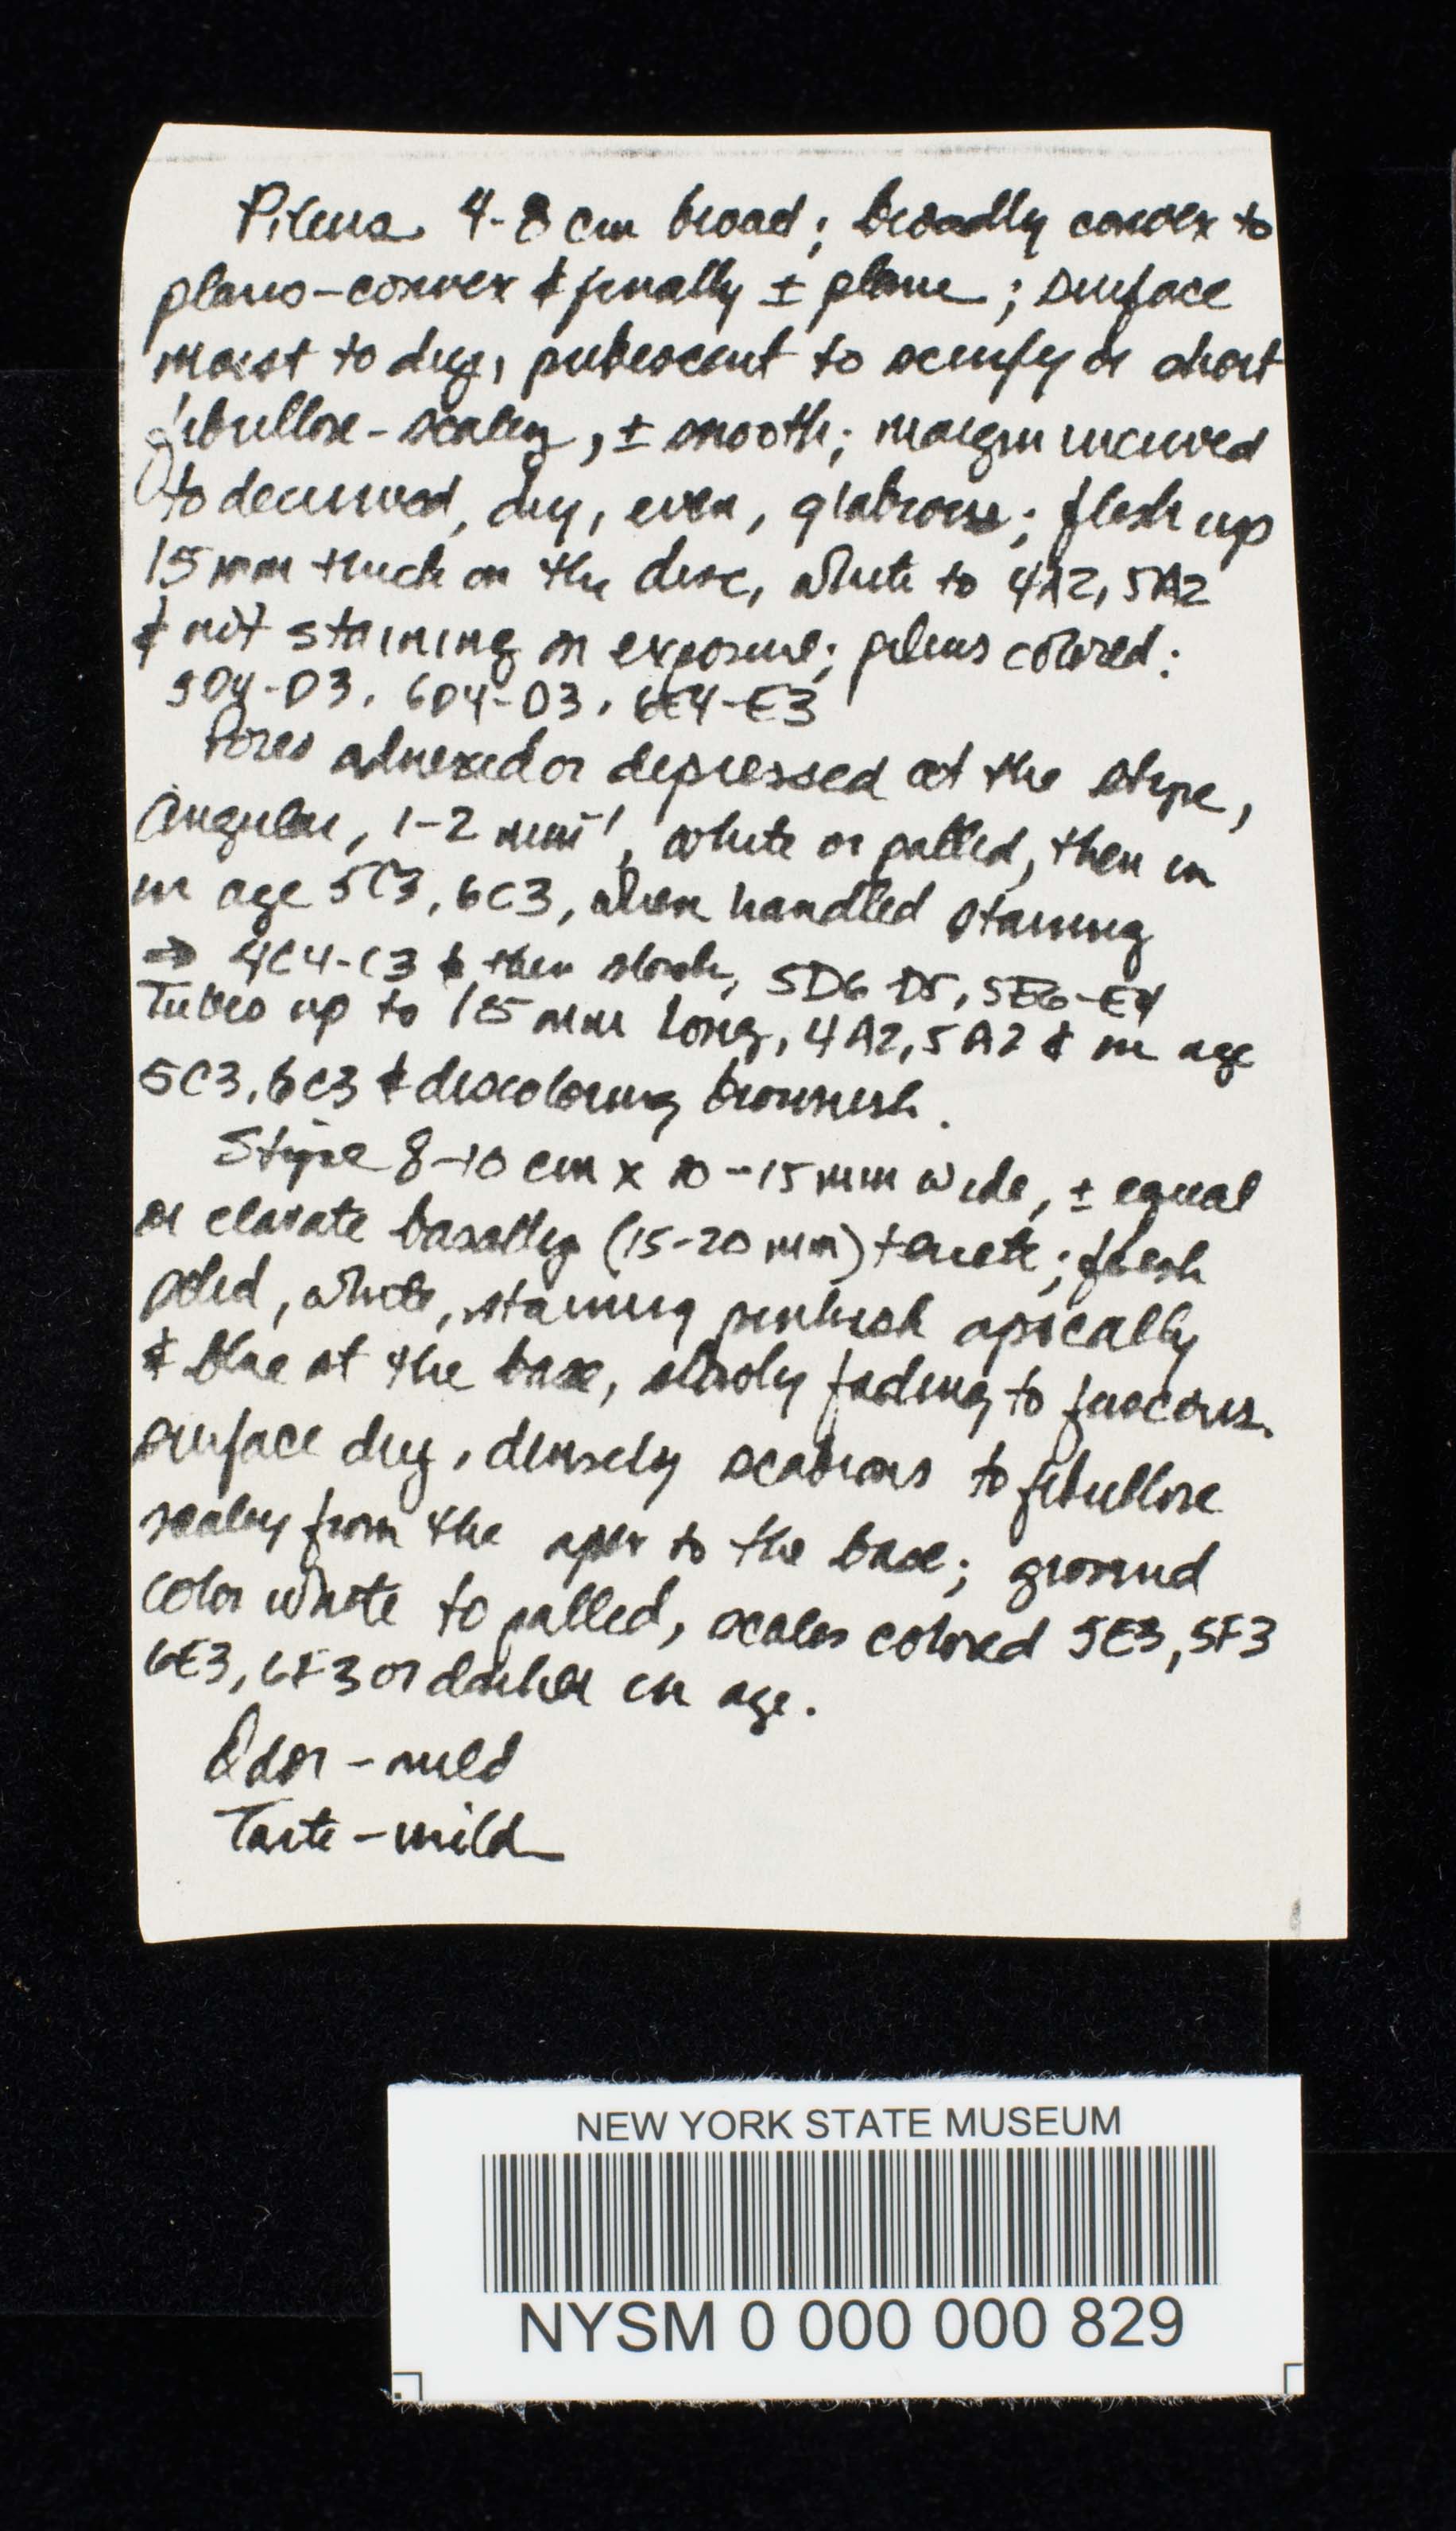 Pileus 4-8 cm broad; broadly convex to
plano-convex & finally ± plane; surface
moist to dry, pubescent to scurfy or short
fibrillose-scaley, ± smooth; margin incurved
to decurved, dry, even, glabrous; flesh up
15 mm thick on the disc, white to 4A2, 5A2
& not staining on exposure; pileus colored:
5D4-D3, 6D4-D3, 6E4-E3
Pores adnexed or depressed at the stipe,
angular, 1-2 mm⁻¹, white or pallid, then in
in age 5C3, 6C3, when handled staining
→ 4C4-C3 & then slowly, 5D6-D5, 5E6-E4
Tubes up to 15 mm long, 4A2, 5A2 & in age
5C3, 6C3 & discoloring brownish.
Stipe 8-10 cm x 10-15 mm wide, ± equal
or clavate basally (15-20 mm) terete; flesh
solid, white, staining pinkish apically
& blue at the base, slowly fading to fuscous.
surface dry, densely scabrous to fibrillose
scaley from the apex to the base; ground
color white to pallid, scales colored 5E3, 5F3
6E3, 6F3 or darker in age.
Odor - mild
Taste - mild
NEW YORK STATE MUSEUM
NYSM 0 000 000 829